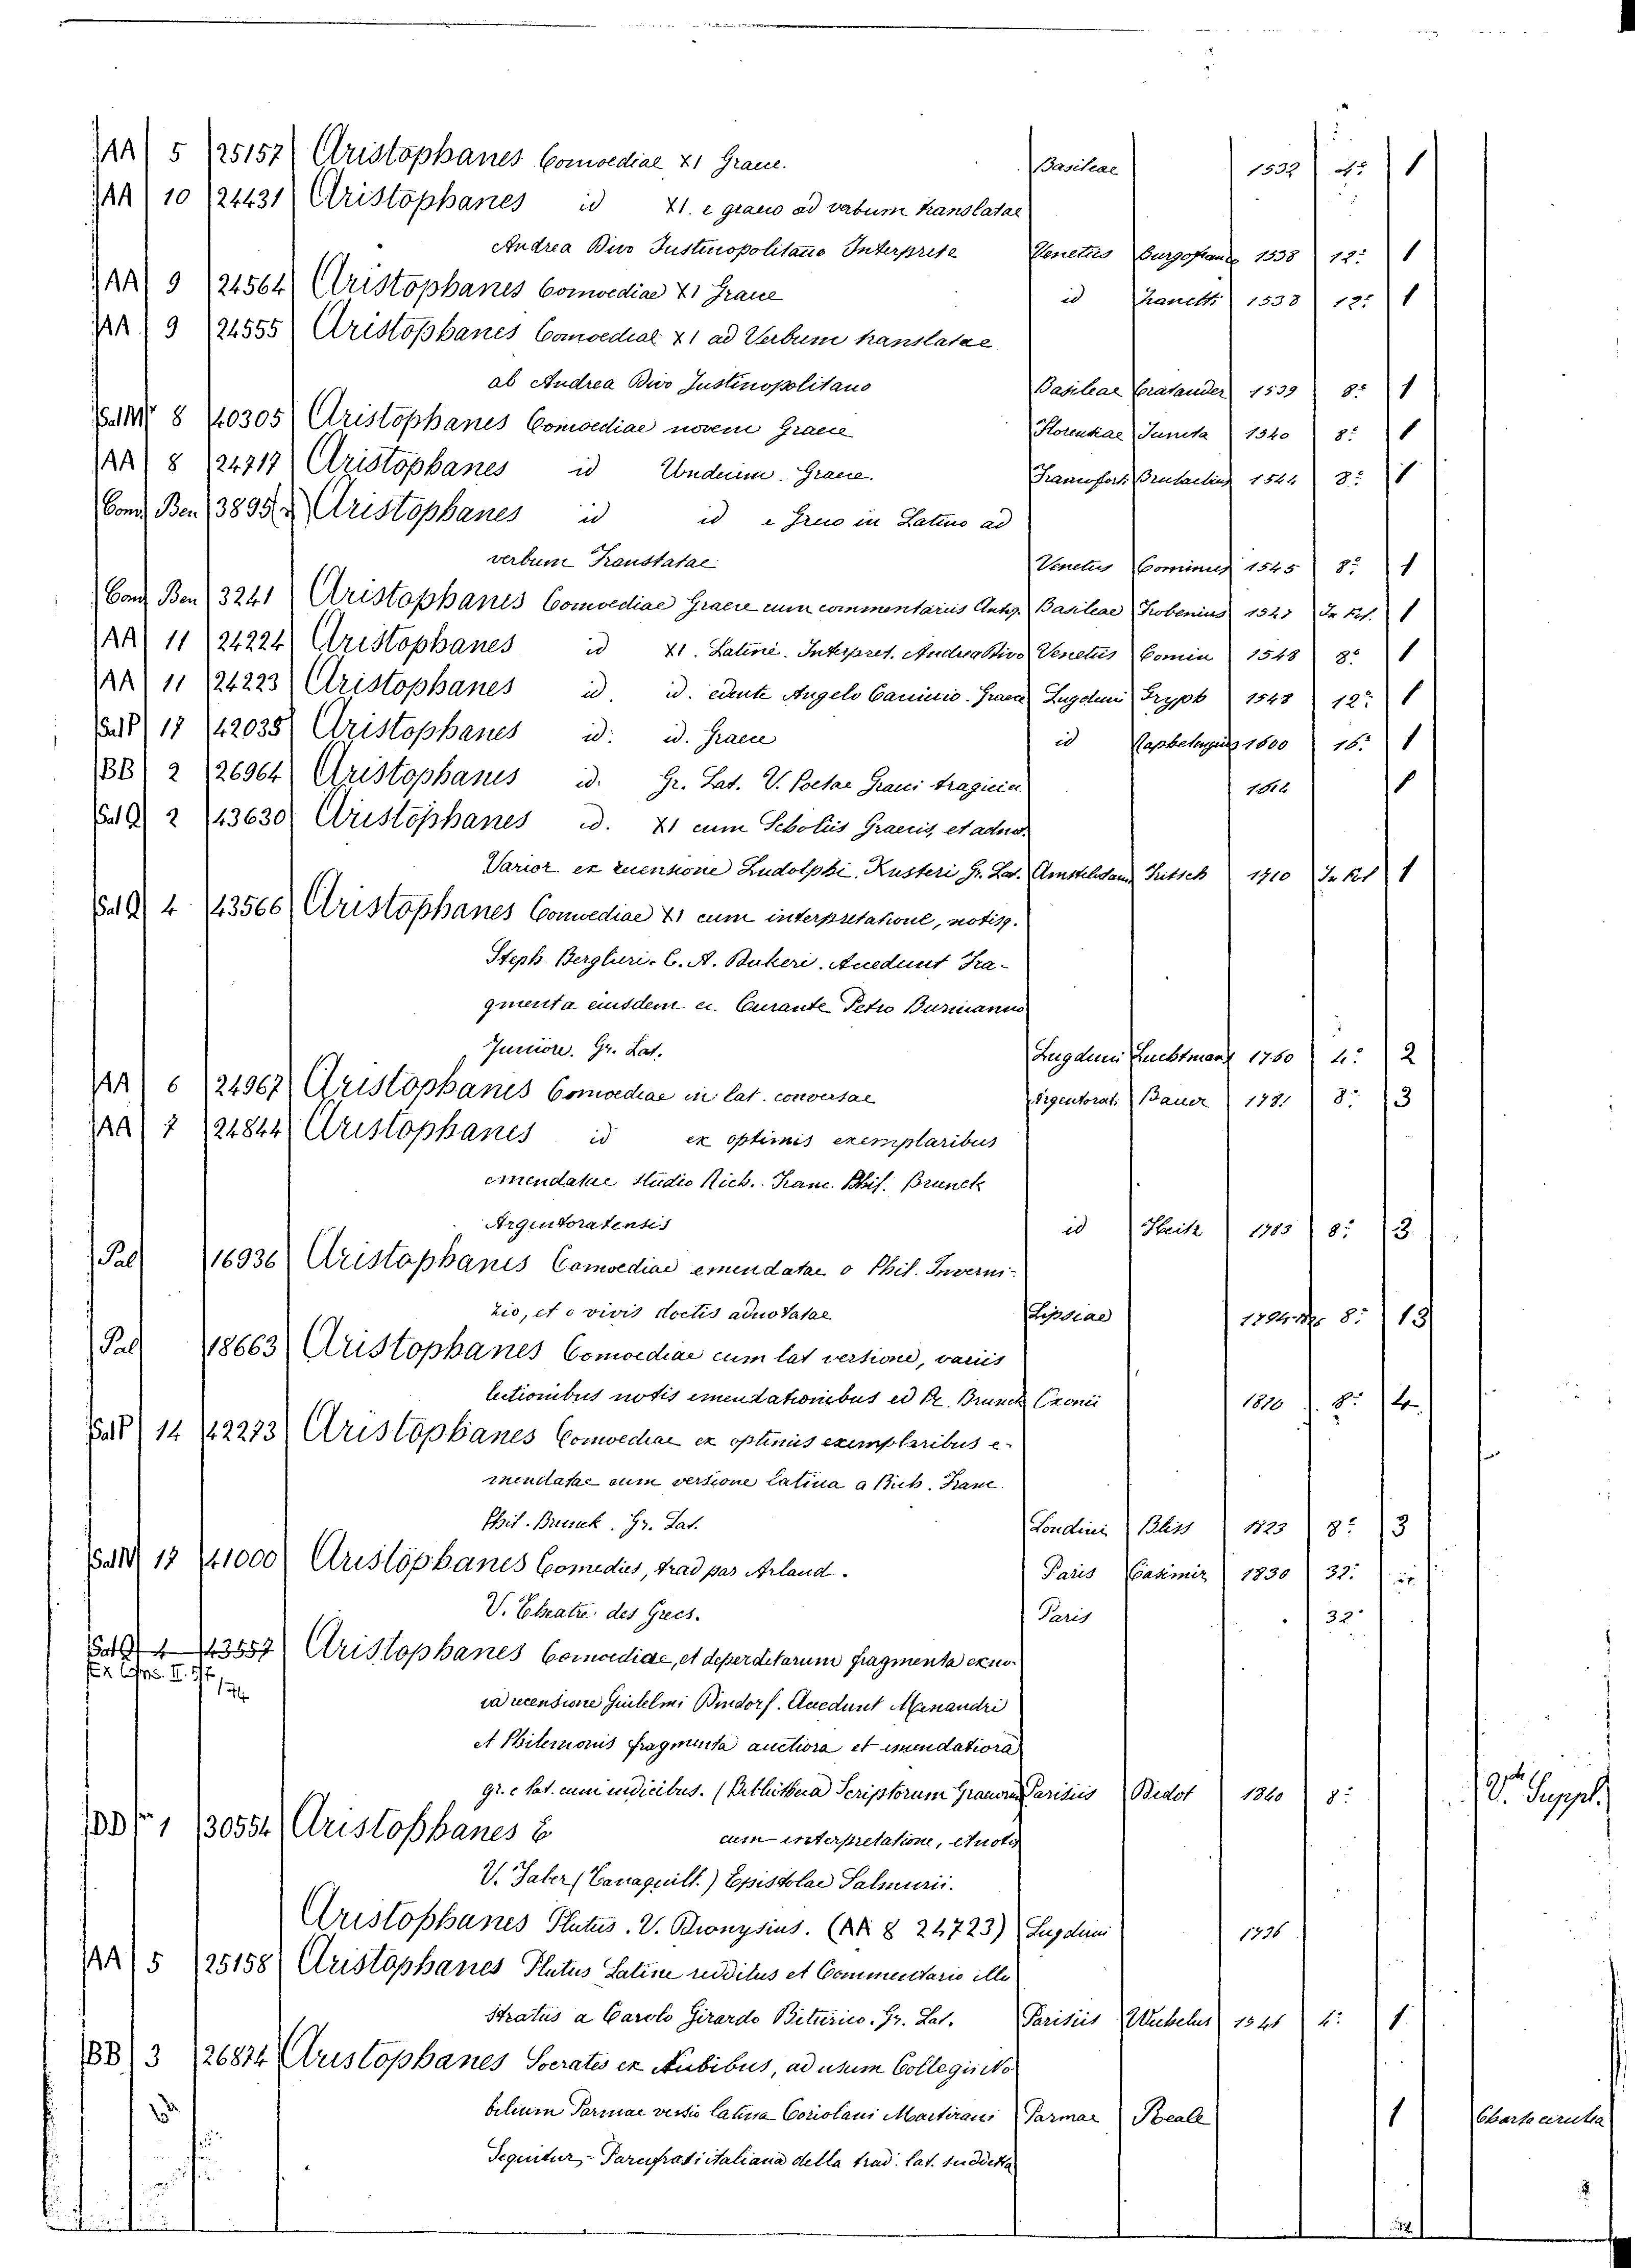 AA 5 25157 Aristophanes Comoediae XI Graece. Basileae 1532 4º 1
AA 10 24431 Aristophanes id XI. e graeco ad verbum translatae
Andrea Divo Justinopolitano Interprete Venetiis Burgofranc 1538 12º 1
AA 9 24564 Aristophanes Comoediae XI Graece id Zanetti 1538 12º 1
AA 9 24555 Aristophanes Comoediae XI ad Verbum translatae
ab Andrea Divo Justinopolitano Basileae Cratander 1539 8º 1
Sal M 8 40305 Aristophanes Comoediae novem Graece Florentiae Juncta 1540 8º 1
AA 8 24717 Aristophanes id Undecim. Graece. Francofort. Brubachius 1544 8º 1
Cons Ben 3895 Aristophanes id id e Greco in Latino ad
verbum Translatae Venetiis Cominus 1545 8º 1
Cons Ben 3241 Aristophanis Comoediae Graece cum commentariis Antiq. Basileae Frobenius 1547 In fol. 1
AA 11 24224 Aristophanes id XI. Latine. Interpret. Andrea Divo Venetiis Comin 1548 8º 1
AA 11 24223 Aristophanes id. id. edente Angelo Caninio. Graece Lugduni Gryph 1548 12º 1
Sal P 17 42035 Aristophanes id: id. Graece id Rapbelengius 1600 16º 1
BB 2 26964 Aristophanis id. Gr. Lat. V. Poetae Graeci tragici 1614 1
Sal Q 2 43630 Aristophanes id. XI cum Scholiis Graecis, et adnot.
Varior. ex recensione Ludolphi Kusteri Gr. Lat. Amstelodam Fritsch 1710 In fol 1
Sal Q 4 43566 Aristophanes Comoediae XI cum interpretatione, notisq.
Steph. Bergleri. C. A. Dukeri. Accedunt Fra-
gmenta eiusdem ec. Curante Petro Burmanno
Juniore. Gr. Lat. Lugduni Luchtmans 1760 4º 2
AA 6 24967 Aristophanis Comoediae in lat. conversae Argentorat. Bauer 1781 8º 3
AA 7 24844 Aristophanes id ex optimis exemplaribus
emendatae studio Rich. Franc. Phil. Brunck
Argentoratensis id Heitz 1783 8º 3.
Pal 16936 Aristophanis Comoediae emendatae a Phil. Inverni-
zio, et a viris doctis adnotatae Lipsiae 8º 13
Pal 18663 Aristophanes Comoediae cum lat versione, variis
lectionibus notis emendationibus ed R. Brunck Oxonii 1810 8º 4
Sal P 14 42273 Aristophanes Comoediae ex optimis exemplaribus e-
mendatae cum versione latina a Rich. Franc.
Phil. Brunck. Gr. Lat. Londini Bliss 1823 8º 3
Sal N 17 41000 Aristophanes Comedies, trad par Artaud. Paris Casimir 1830 32º
V. Theatre des Grecs. Paris 32º
Sal Q 4 43557 Aristophanes Comoediae, et deperditarum fragmenta ex no-
va recensione Guilelmi Dindorf. Accedunt Menandri
et Philemonis fragmenta auctiora et emendatiora
gr. e lat. cum indicibus. (Bibliotheca Scriptorum Graecorum Parisiis Didot 1840 8º V. Suppl.
DD 1 30554 Aristophanes cum interpretatione, et notis
V. Faber (Tanaquill.) Epistolae Salmurii.
Aristophanes Plutus. V. Dionysius. (AA 8 24723) Lugduni 1736
AA 5 25158 Aristophanes Plutus Latine redditus et Commentario illu
stratus a Carolo Girardo Biturico. Gr. Lat. Parisiis Wechelus 4º 1
BB 3 26874 Aristophanes Socrates ex Nubibus, ad usum Collegii No
bilium Parmae versio latina Coriolani Martirani Parmae Reale 1 Charta cerulea
Sequitur - Parafrasi italiana della trad. lat. suddetta